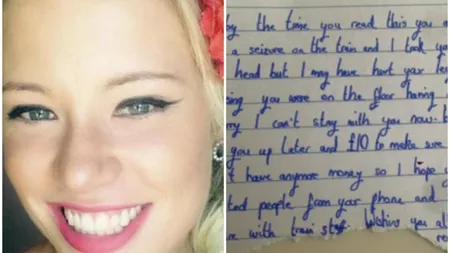 the time you read this you
a seizure on the train and I took
head but I may have hurt your
you were on the floor having
I can't stay with you now.
you up later and £10 to make sure
have anymore money so I hope
people from your phone and
with train staff Wishing you